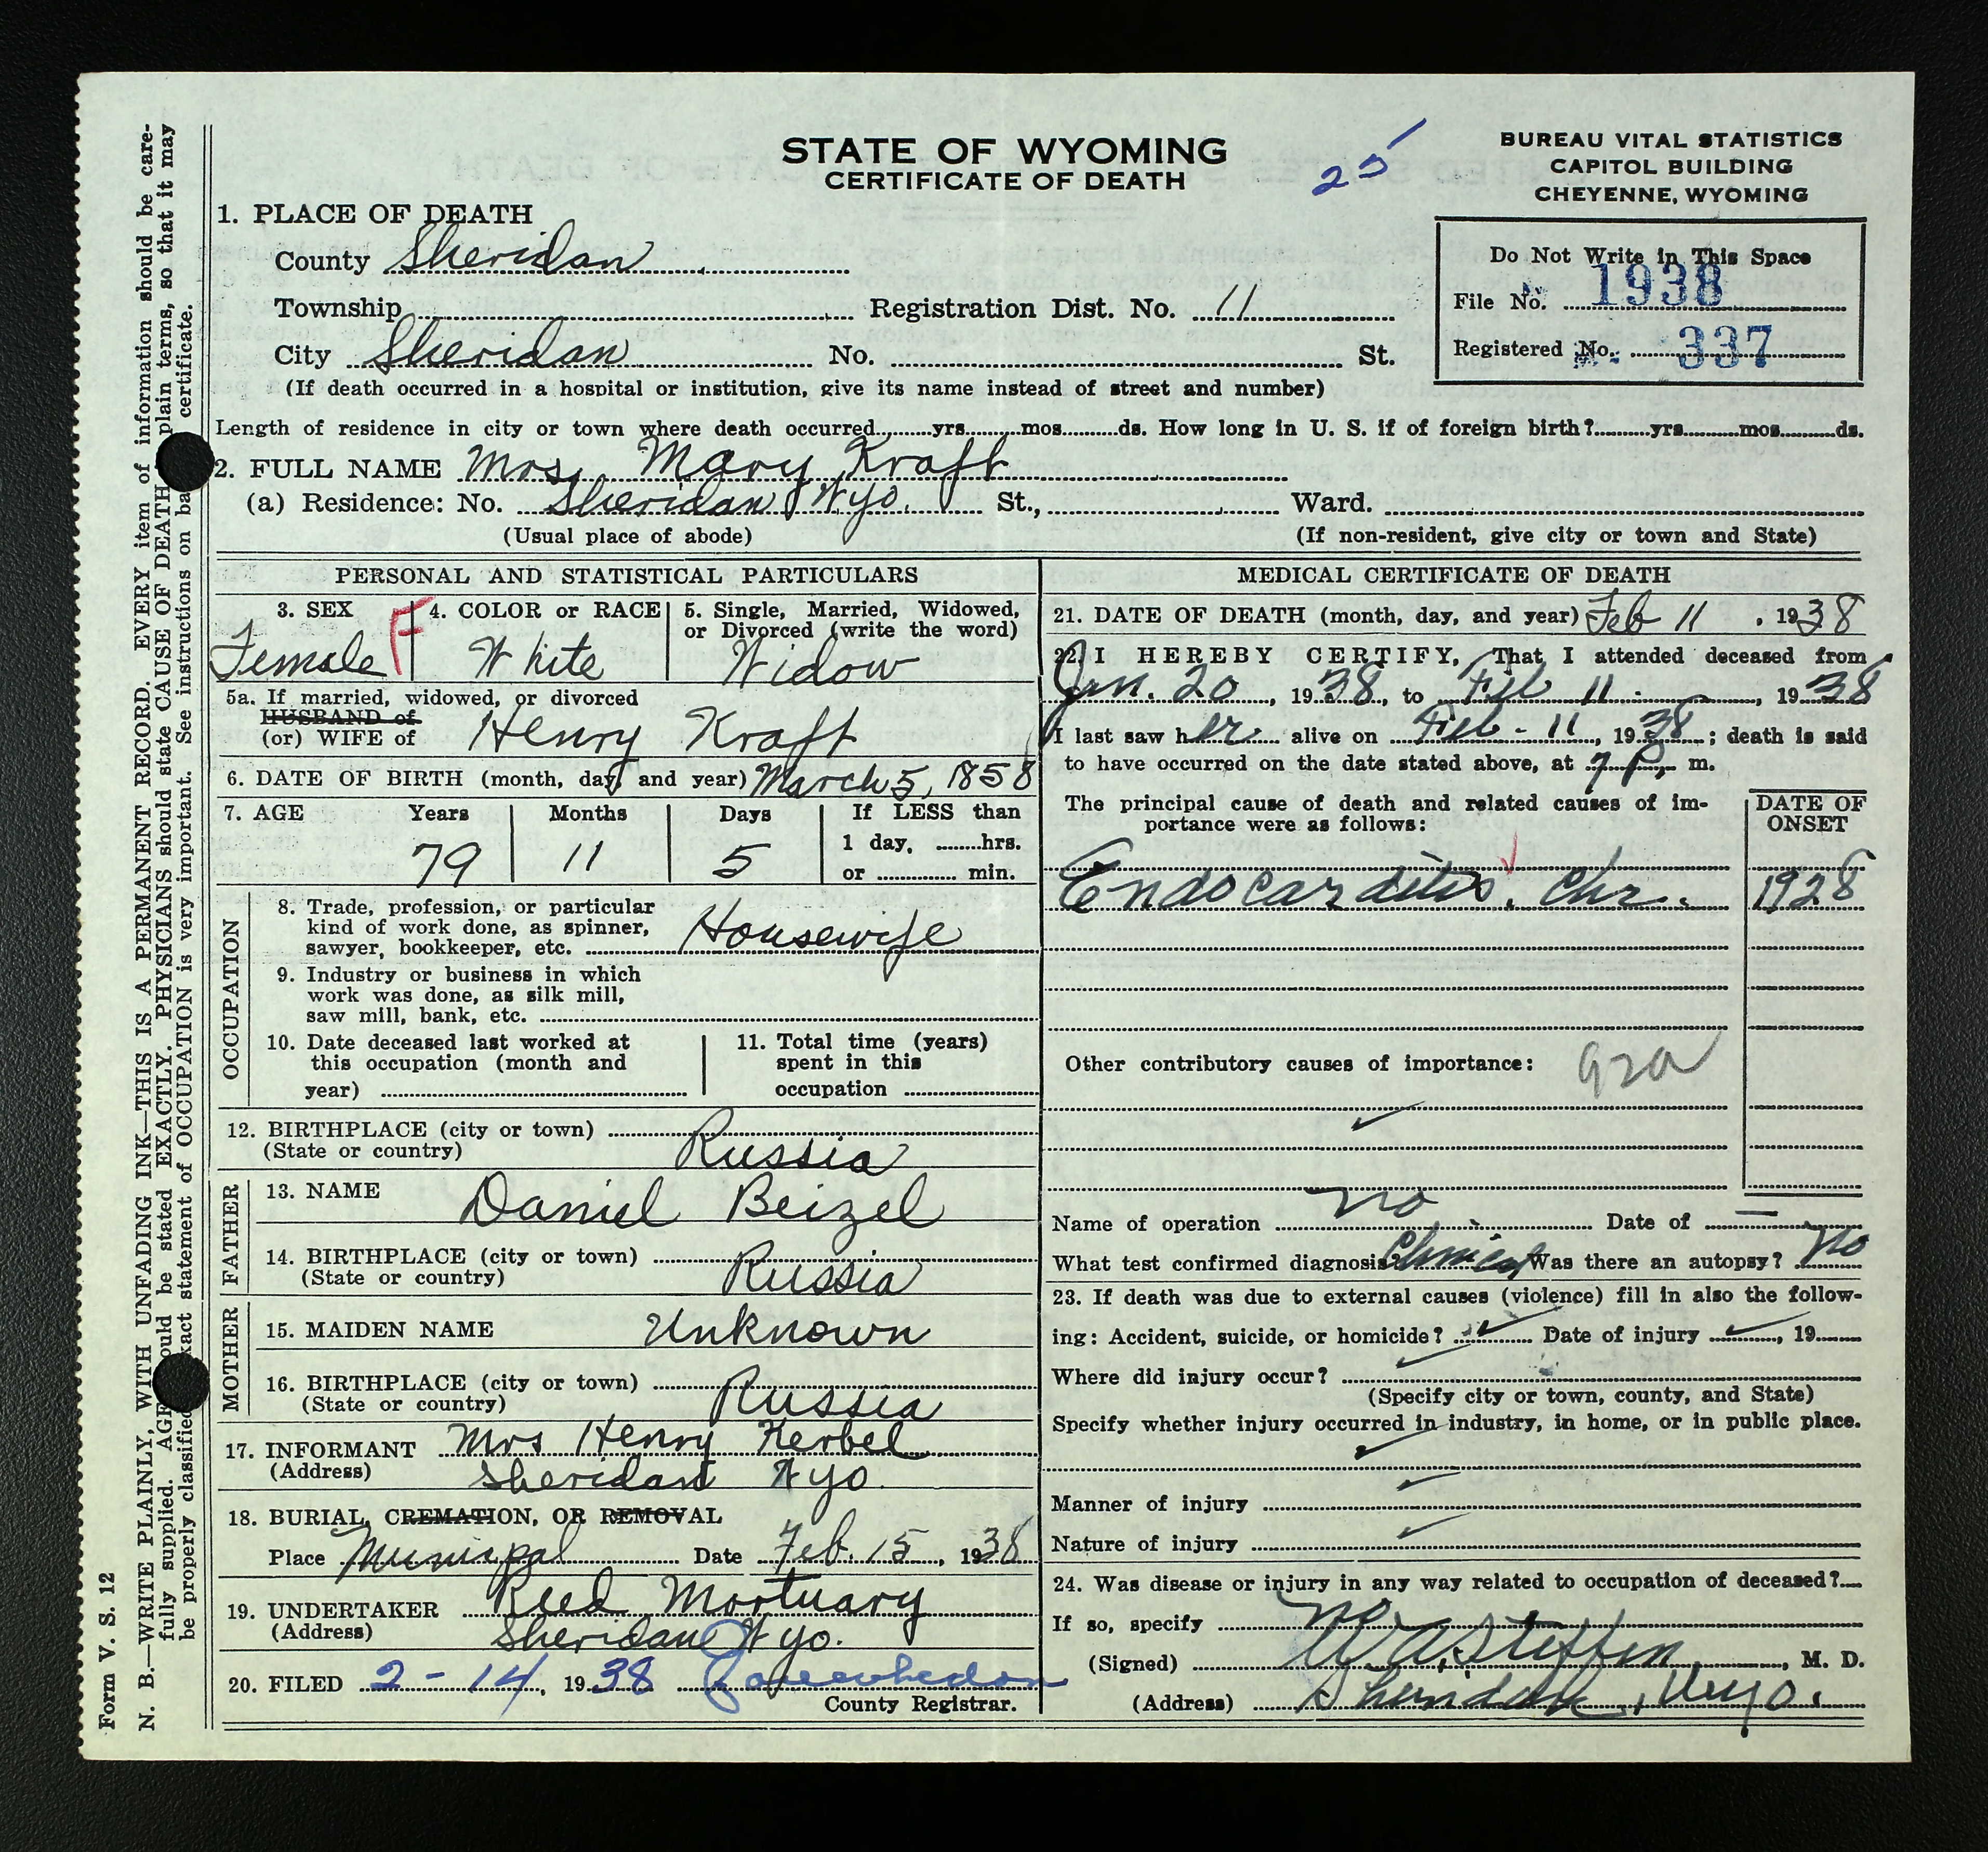 STATE OF WYOMING
CERTIFICATE OF DEATH
25
BUREAU VITAL STATISTICS
CAPITOL BUILDING
CHEYENNE, WYOMING
Do Not Write in This Space
File No. 1938
Registered No. 337
1. PLACE OF DEATH
County Sheridan
Township Registration Dist. No. 11
City Sheridan No. St.
(If death occurred in a hospital or institution, give its name instead of street and number)
Length of residence in city or town where death occurred yrs. mos. ds. How long in U. S. if of foreign birth? yrs. mos. ds.
2. FULL NAME Mrs. Mary Kraft
(a) Residence: No. Sheridan Wyo. St., Ward.
(Usual place of abode) (If non-resident, give city or town and State)
PERSONAL AND STATISTICAL PARTICULARS
3. SEX 4. COLOR or RACE 5. Single, Married, Widowed,
or Divorced (write the word)
Female F White Widow
5a. If married, widowed, or divorced
HUSBAND of
(or) WIFE of Henry Kraft
6. DATE OF BIRTH (month, day, and year) March 5, 1858
7. AGE Years Months Days If LESS than
1 day, hrs.
79 11 5 or min.
OCCUPATION
8. Trade, profession, or particular
kind of work done, as spinner,
sawyer, bookkeeper, etc. Housewife
9. Industry or business in which
work was done, as silk mill,
saw mill, bank, etc.
10. Date deceased last worked at
this occupation (month and
year)
11. Total time (years)
spent in this
occupation
12. BIRTHPLACE (city or town)
(State or country) Russia
FATHER
13. NAME Daniel Beizel
14. BIRTHPLACE (city or town)
(State or country) Russia
MOTHER
15. MAIDEN NAME Unknown
16. BIRTHPLACE (city or town)
(State or country) Russia
17. INFORMANT Mrs Henry Kerbel
(Address) Sheridan Wyo.
18. BURIAL, CREMATION, OR REMOVAL
Place Municpal Date Feb. 15, 1938
19. UNDERTAKER Reed Mortuary
(Address) Sheridan Wyo.
20. FILED 2-14, 1938
County Registrar.
MEDICAL CERTIFICATE OF DEATH
21. DATE OF DEATH (month, day, and year) Feb 11, 1938
22. I HEREBY CERTIFY, That I attended deceased from
Jan. 20, 1938, to Feb 11, 1938
I last saw her alive on Feb-11, 1938; death is said
to have occurred on the date stated above, at 7 P. m.
The principal cause of death and related causes of im-
portance were as follows:
DATE OF
ONSET
Endocarditis, Chr. 1928
Other contributory causes of importance: 92a
Name of operation no Date of —
What test confirmed diagnosis? Clinical Was there an autopsy? No
23. If death was due to external causes (violence) fill in also the follow-
ing: Accident, suicide, or homicide? Date of injury , 19
Where did injury occur?
(Specify city or town, county, and State)
Specify whether injury occurred in industry, in home, or in public place.
Manner of injury
Nature of injury
24. Was disease or injury in any way related to occupation of deceased?
If so, specify no
(Signed) W A Steffen, M. D.
(Address) Sheridan, Wyo.
Form V. S. 12
N. B.—WRITE PLAINLY, WITH UNFADING INK—THIS IS A PERMANENT RECORD. EVERY item of information should be care-
fully supplied. AGE should be stated EXACTLY. PHYSICIANS should state CAUSE OF DEATH plain terms, so that it may
be properly classified. exact statement of OCCUPATION is very important. See instructions on ba certificate.